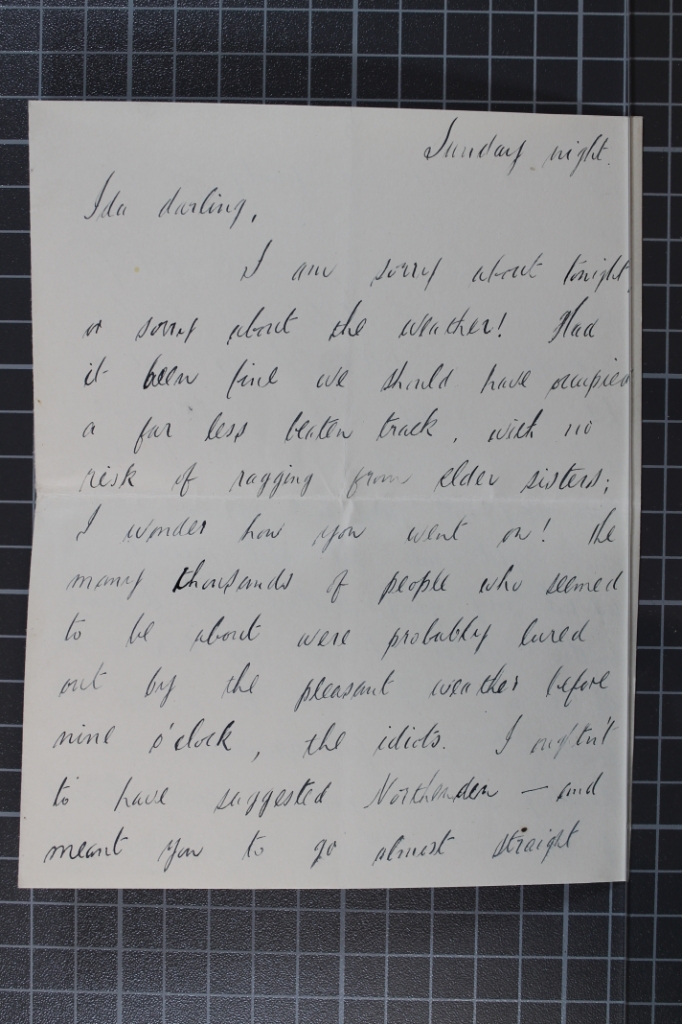 Sunday night.
Ida darling,
I am sorry about tonight,
or sorry about the weather! Had
it been fine we should have occupied
a far less beaten track, with no
risk of ragging from elder sisters;
I wonder how you went on! The
many thousands of people who seemed
to be about were probably lured
out by the pleasant weather before
nine o'clock, the idiots. I oughtn't
to have suggested Northenden — and
meant you to go almost straight